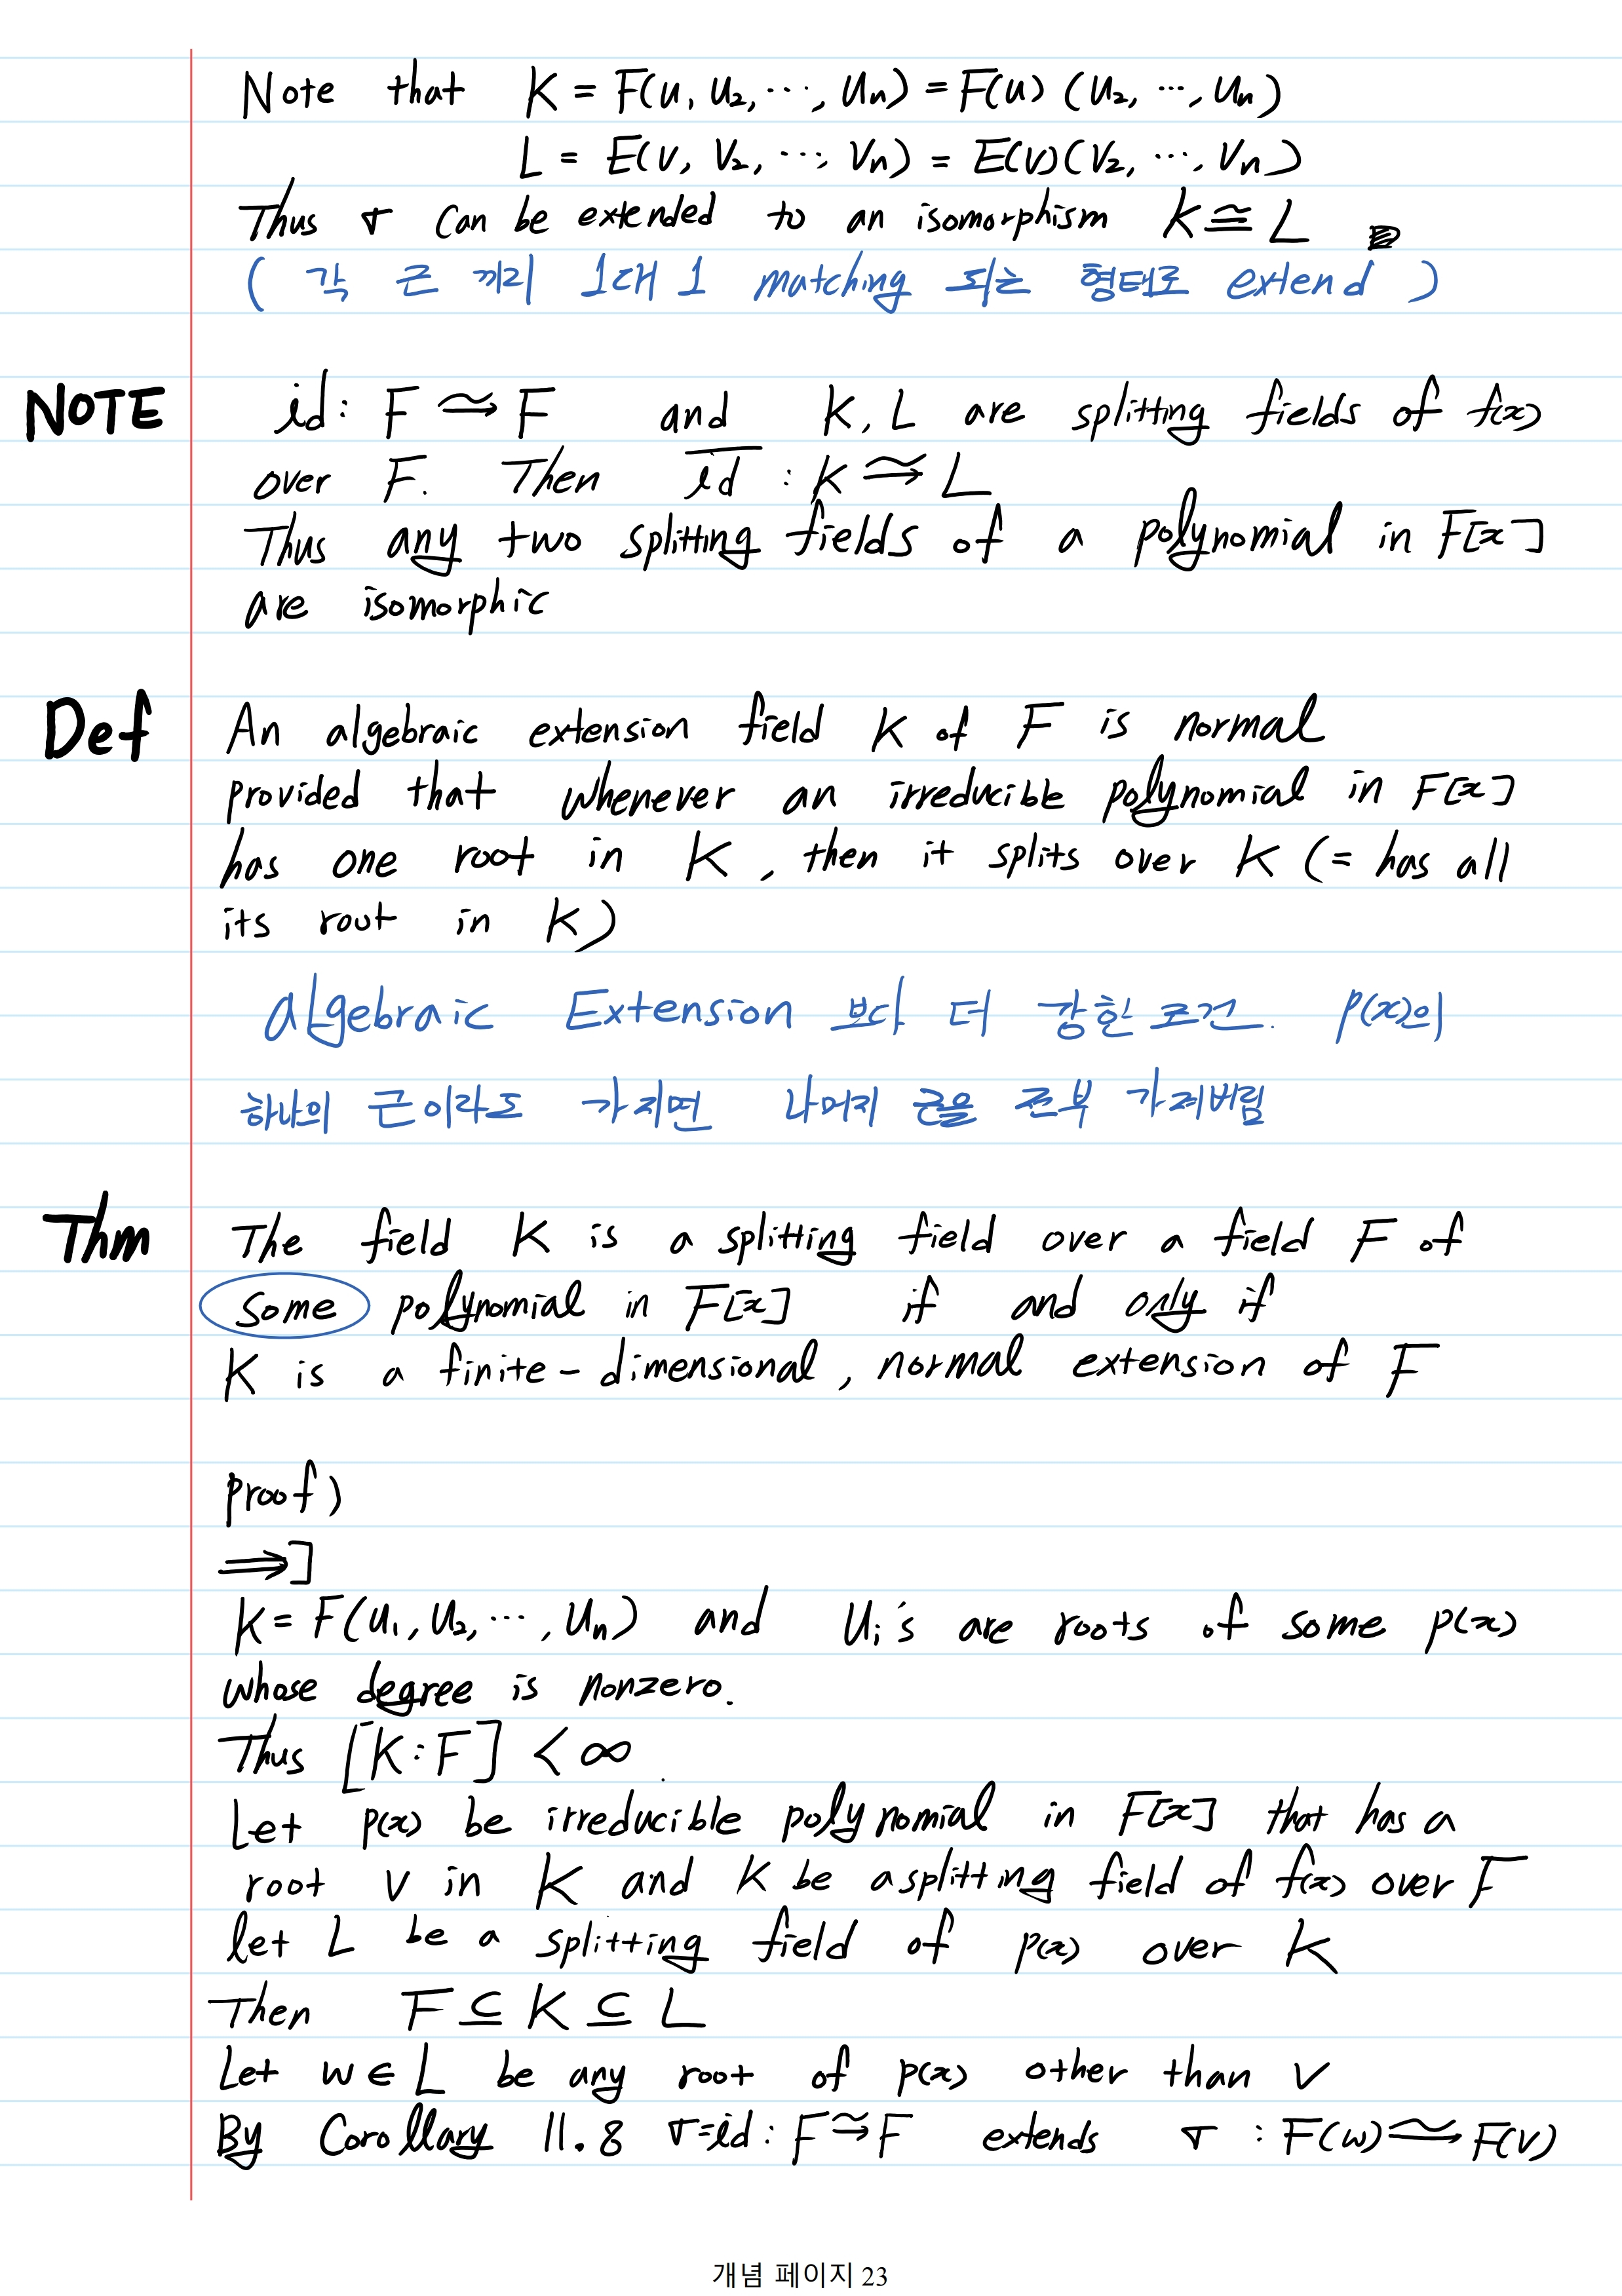 Note that K = F(u, u₂, ⋯, uₙ) = F(u)(u₂, ⋯, uₙ)
L = E(v, v₂, ⋯, vₙ) = E(v)(v₂, ⋯, vₙ)
Thus σ can be extended to an isomorphism K ≅ L
( 각 근 끼리 1대1 matching 되는 형태로 extend )
NOTE id : F ⥲ F and K, L are splitting fields of f(x)
over F. Then \overline{id} : K ⥲ L
Thus any two splitting fields of a polynomial in F[x]
are isomorphic
Def An algebraic extension field K of F is normal
provided that whenever an irreducible polynomial in F[x]
has one root in K, then it splits over K (= has all
its root in K)
algebraic Extension 보다 더 강한 조건. p(x)의
하나의 근이라도 가지면 나머지 근을 전부 가져버림
Thm The field K is a splitting field over a field F of
some polynomial in F[x] if and only if
K is a finite-dimensional, normal extension of F
proof)
⟹]
K = F(u₁, u₂, ⋯, uₙ) and uᵢ's are roots of some p(x)
whose degree is nonzero.
Thus [K:F] < ∞.
Let p(x) be irreducible polynomial in F[x] that has a
root v in K and K be a splitting field of f(x) over F
let L be a splitting field of p(x) over K
Then F ⊆ K ⊆ L
Let w ∈ L be any root of p(x) other than v
By Corollary 11.8 σ=id : F ⥲ F extends σ : F(w) ⥲ F(v)
개념 페이지 23